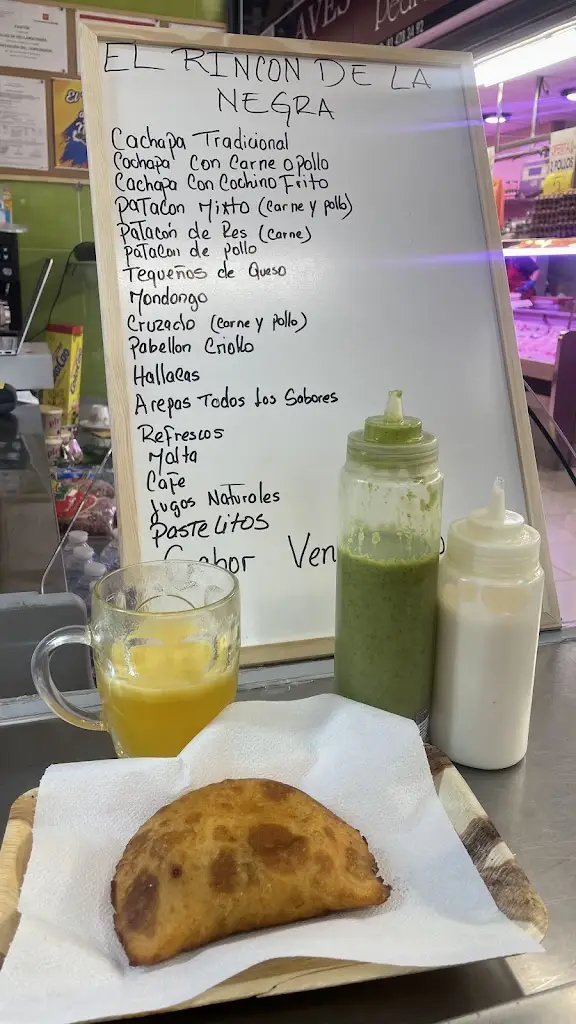 EL RINCON DE LA
NEGRA
Cachapa Tradicional
Cachapa con Carne o Pollo
Cachapa Con Cochino Frito
Patacon Mixto (Carne y pollo)
Patacón de Res (Carne)
Patacon de Pollo
Tequeños de Queso
Mondongo
Cruzado (Carne y pollo)
Pabellon Criollo
Hallacas
Arepas Todos los Sabores
Refrescos
Malta
Café
Jugos Naturales
Pastelitos
AVES
OFERTA
2 POLLOS